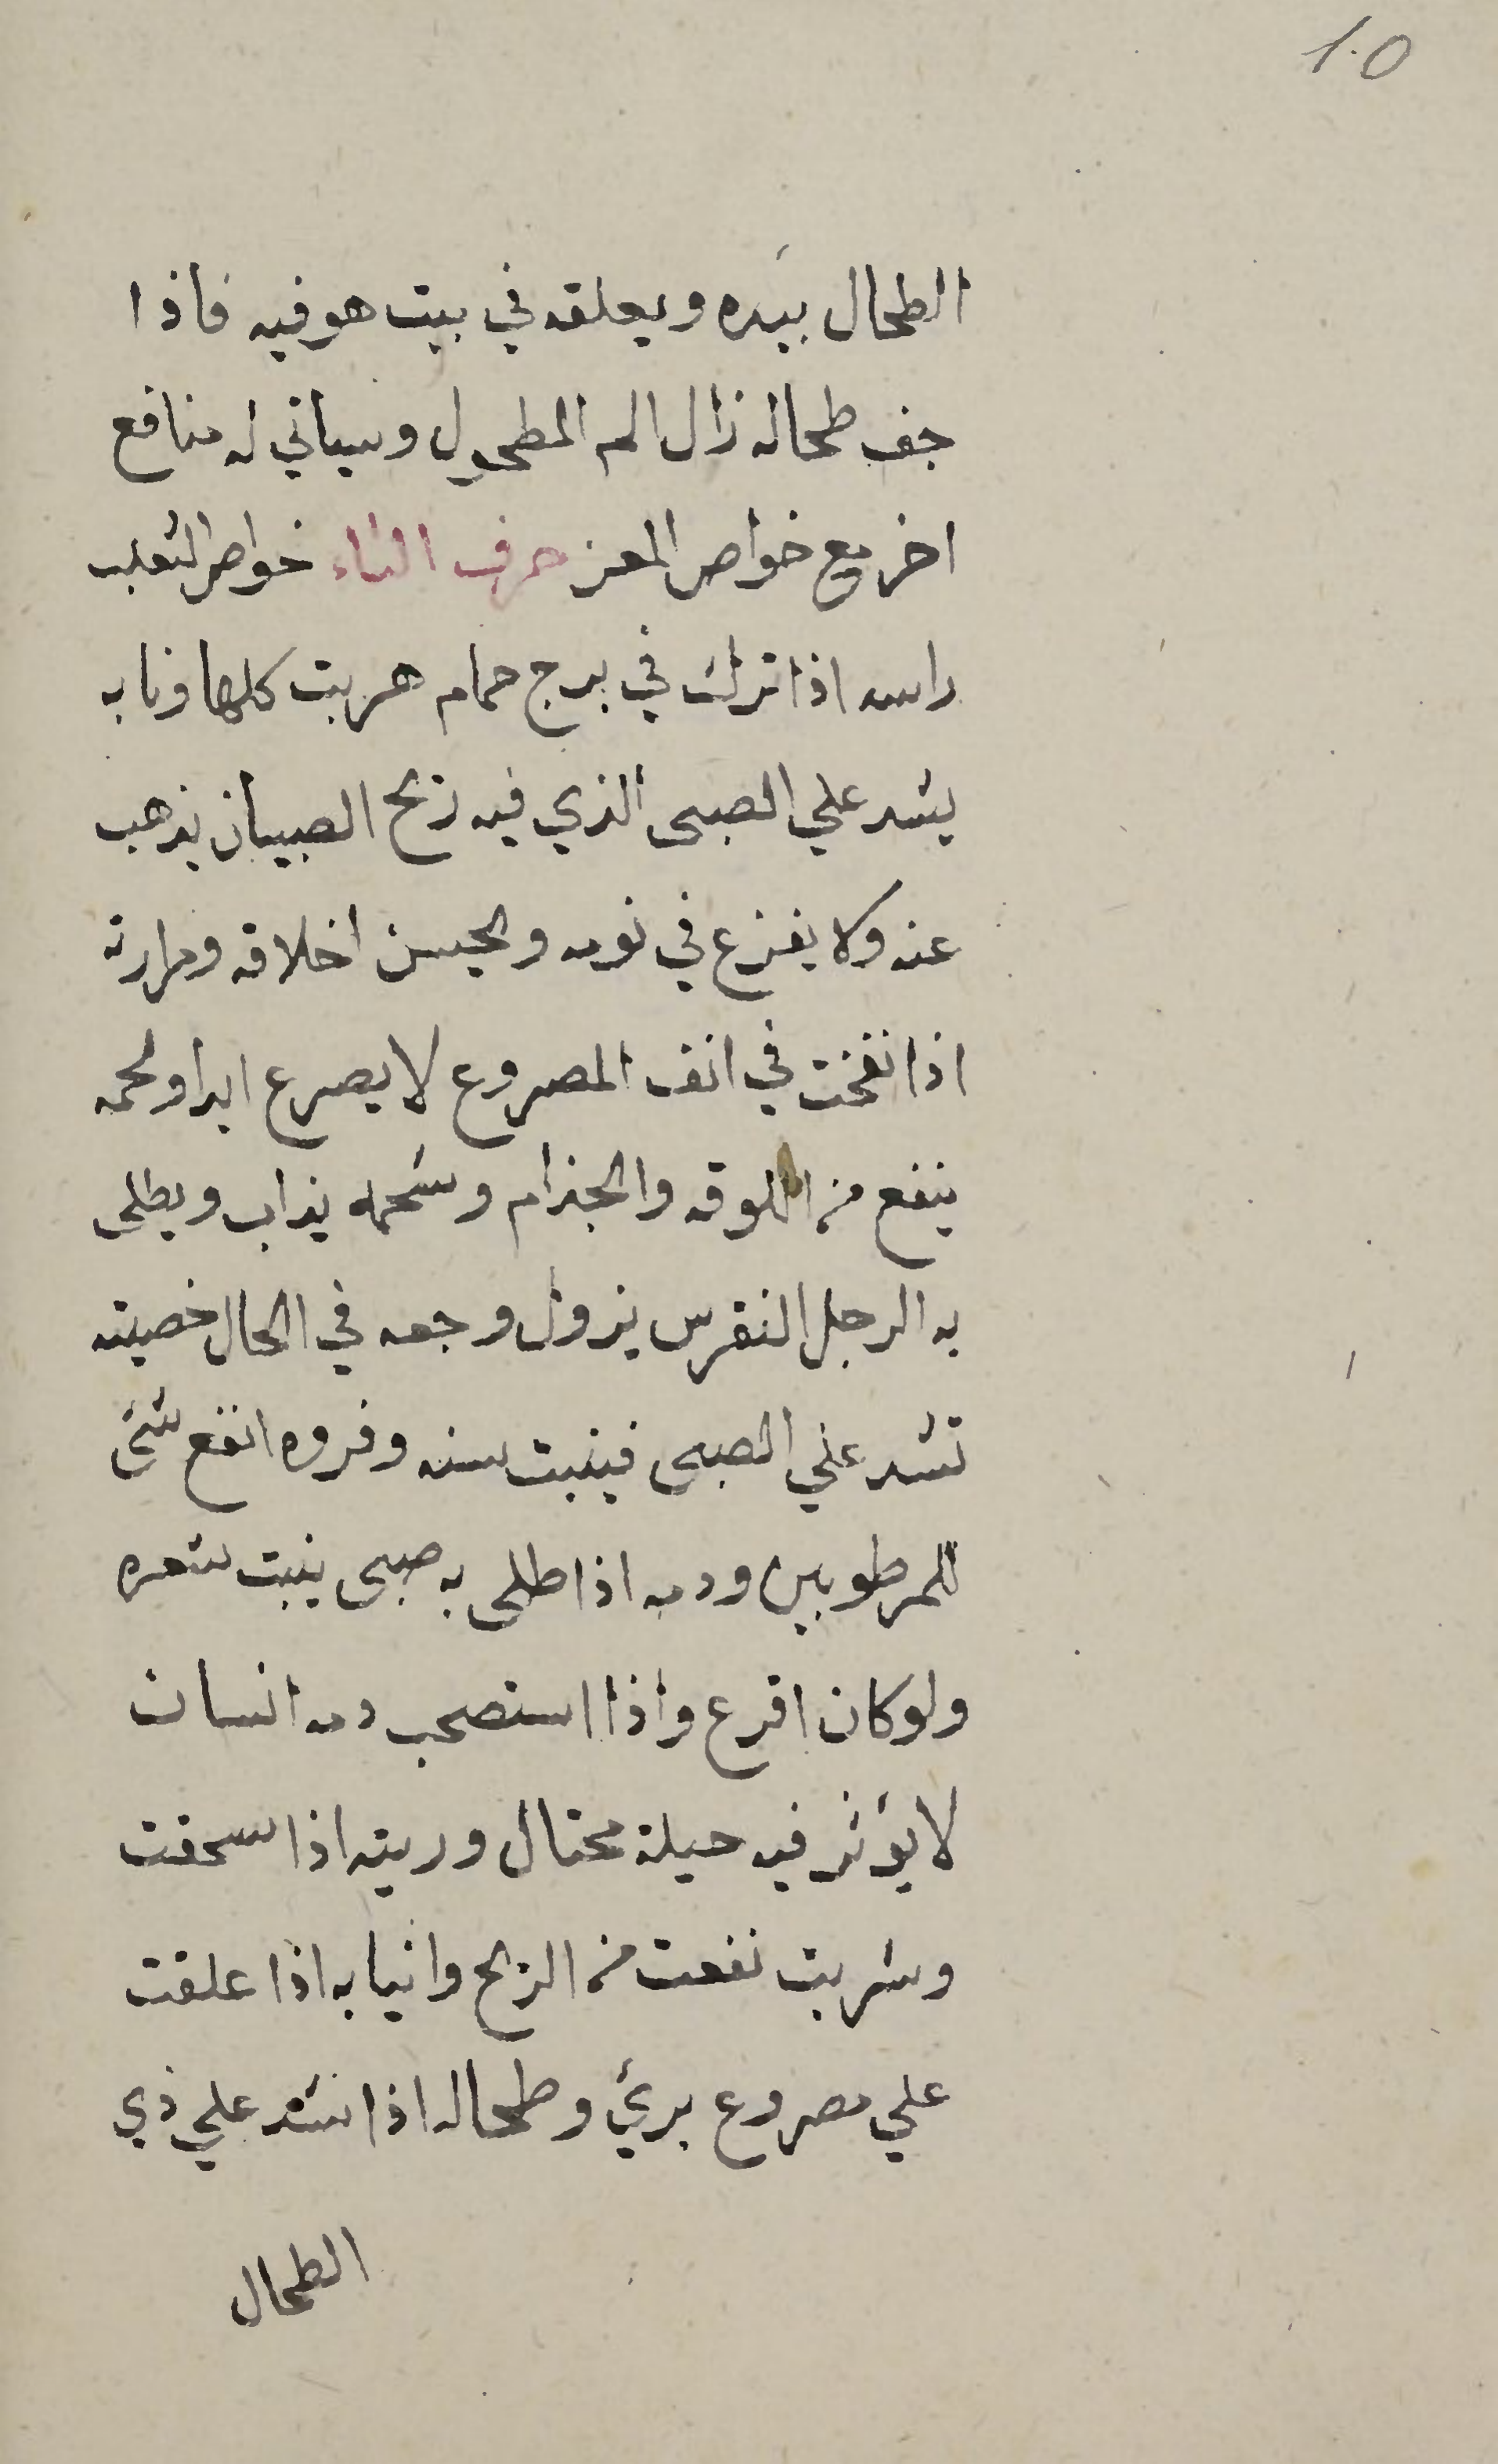 ١٠٥
الطحال بيده ويعلقه في بيت هو فيه فاذا
جف طحاله زال الم المطحول وسياتي له منافع
اخر مع خواص المعز حرف الثاء خواص الثعلب
راسه اذا ترك في برج حمام هربت كلها ونابه
يشد علي الصبى الذي فيه ريح الصبيان يذهب
عنه ولا يفزع في نومه ويحسن اخلاقه ومرارته
اذا نفخت في انف المصروع لا يصرع ابدا ولحمه
ينفع من اللوقه والجذام وشحمه يذاب ويطلى
به الرجل النقرس يزول وجعه في الحال خصيته
تشد علي الصبى فينبت سنه وفروه انفع شئ
للمرطوبين ودمه اذا طلى به صبى ينبت شعره
ولو كان اقرع واذا استصحب دمه انسان
لا يؤثر فيه حيلة محتال وريته اذا سحقت
وشربت نفعت من الريح وانيابه اذا علقت
علي مصروع برئ وطحاله اذا شد علي ذي
الطحال